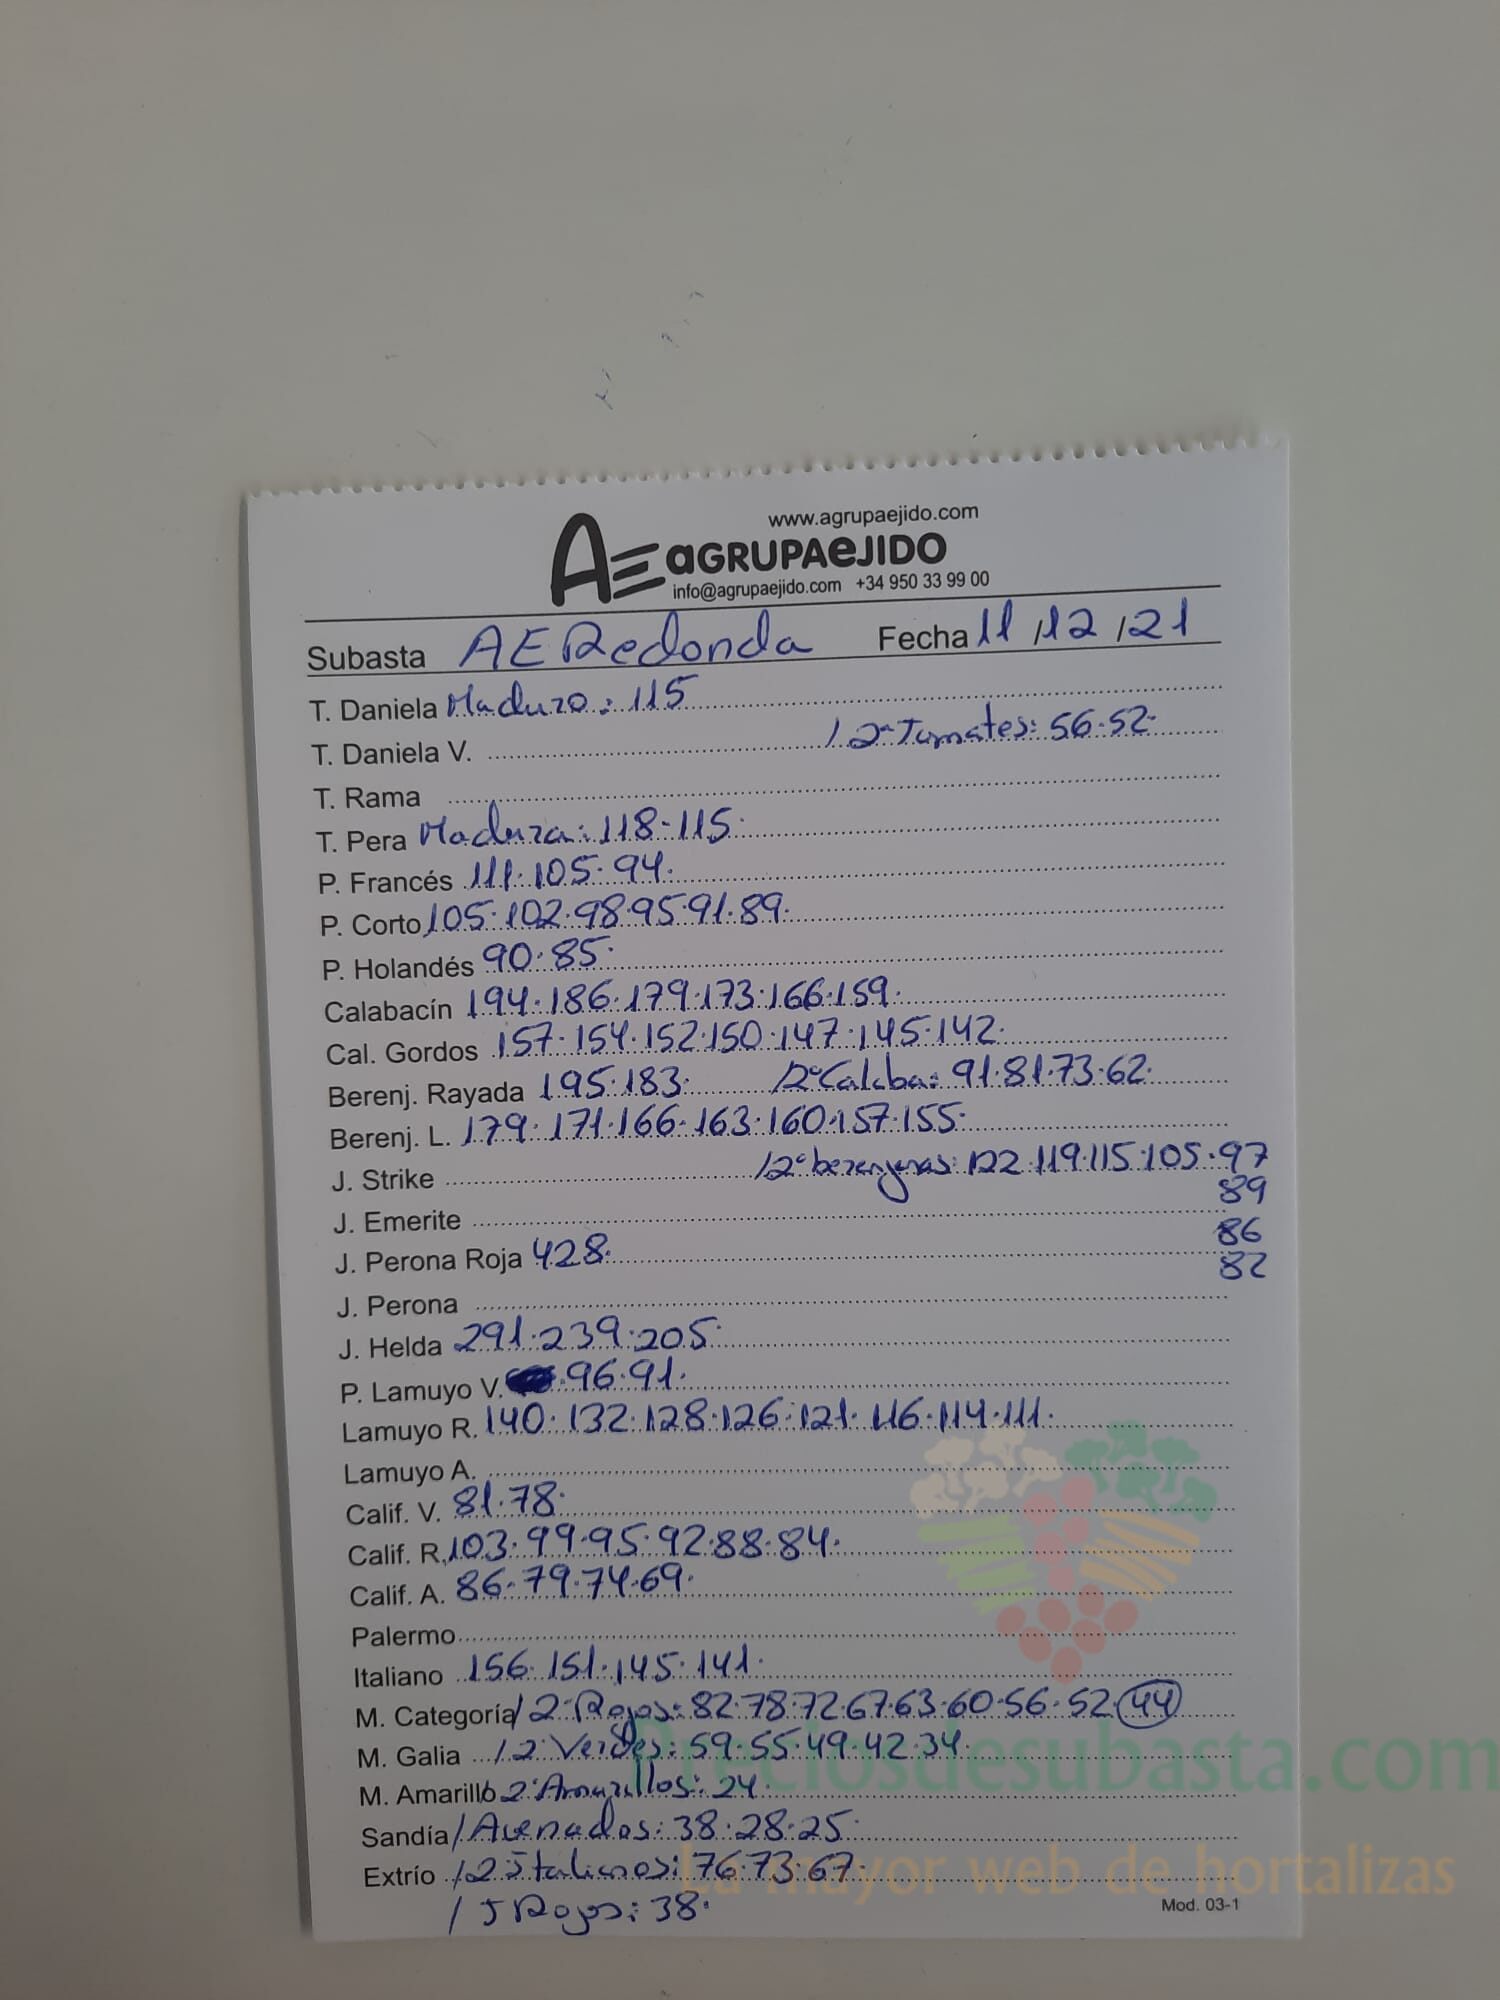 www.agrupaejido.com
AE aGRUPAeJIDO
info@agrupaejido.com +34 950 33 99 00
Subasta AE Redonda Fecha 11/12/21
T. Daniela Maduro: 115
T. Daniela V. / 2ª Tomates: 56·52·
T. Rama
T. Pera Madura: 118·115·
P. Francés 111·105·94·
P. Corto 105·102·98·95·91·89·
P. Holandés 90·85·
Calabacín 194·186·179·173·166·159·
Cal. Gordos 157·154·152·150·147·145·142·
Berenj. Rayada 195·183· /2ª Calaba: 91·81·73·62·
Berenj. L. 179·171·166·163·160·157·155·
J. Strike /2ª berenjenas: 122·119·115·105·97
89
J. Emerite
86
J. Perona Roja 428·
82
J. Perona
J. Helda 291·239·205·
P. Lamuyo V. ·96·91·
Lamuyo R. 140·132·128·126·121·116·114·111·
Lamuyo A.
Calif. V. 81·78·
Calif. R. 103·99·95·92·88·84·
Calif. A. 86·79·74·69·
Palermo
Italiano 156·151·145·141·
M. Categoría / 2ª Rojos: 82·78·72·67·63·60·56·52·44
M. Galia / 2ª Verdes: 59·55·49·42·34·
M. Amarillo 2ª Amarillos: 24·
Sandía / Asenados: 38·28·25·
Extrío / 2 Italianos: 76·73·67·
/ J Rojos: 38·
Mod. 03-1
Preciosdesubasta.com
La mayor web de hortalizas